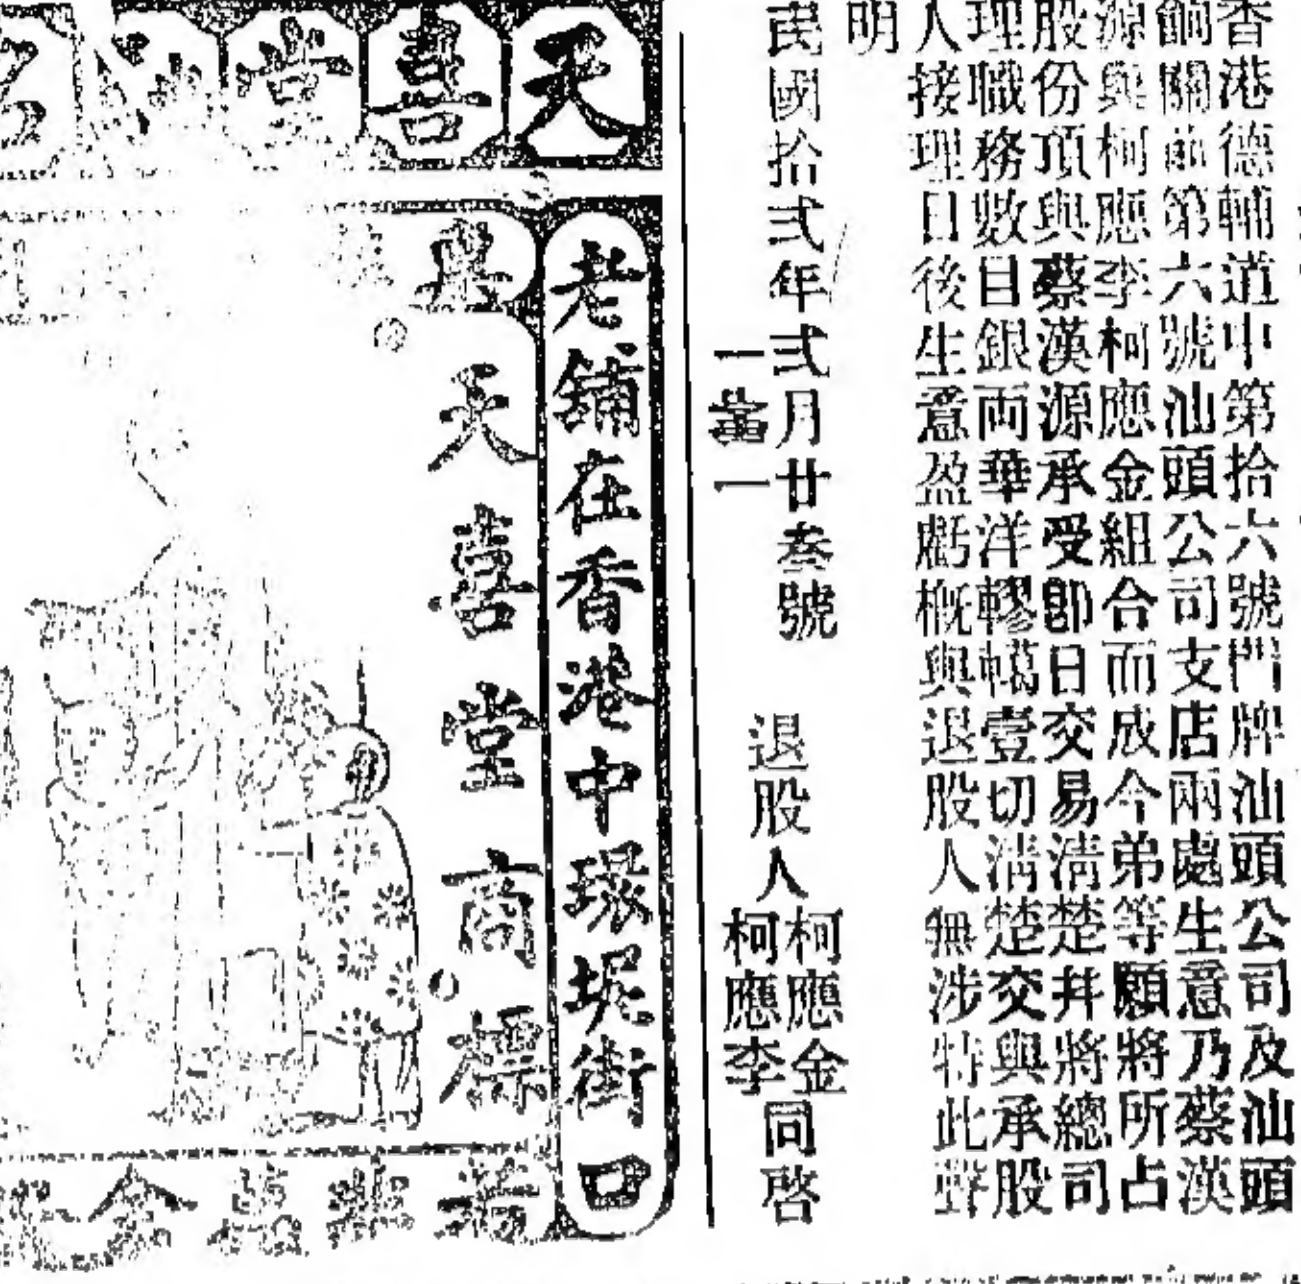 香港德輔道中第拾六號門牌汕頭公司及汕頭
餉關前第六號汕頭公司支店兩處生意乃蔡漢
源與柯應李柯應金組合而成今弟等願將所占
股份頂與蔡漢源承受即日交易淸楚幷將總司
理職務數目銀両華洋轇轕壹切淸楚交與承股
人接理日後生意盈虧概與退股人無涉特此聲
明
民國拾弍年弍月廿叁號
一當一
退股人柯應金
柯應李
同啓
天喜堂
老舖在香港中環坭街口
天喜堂商標